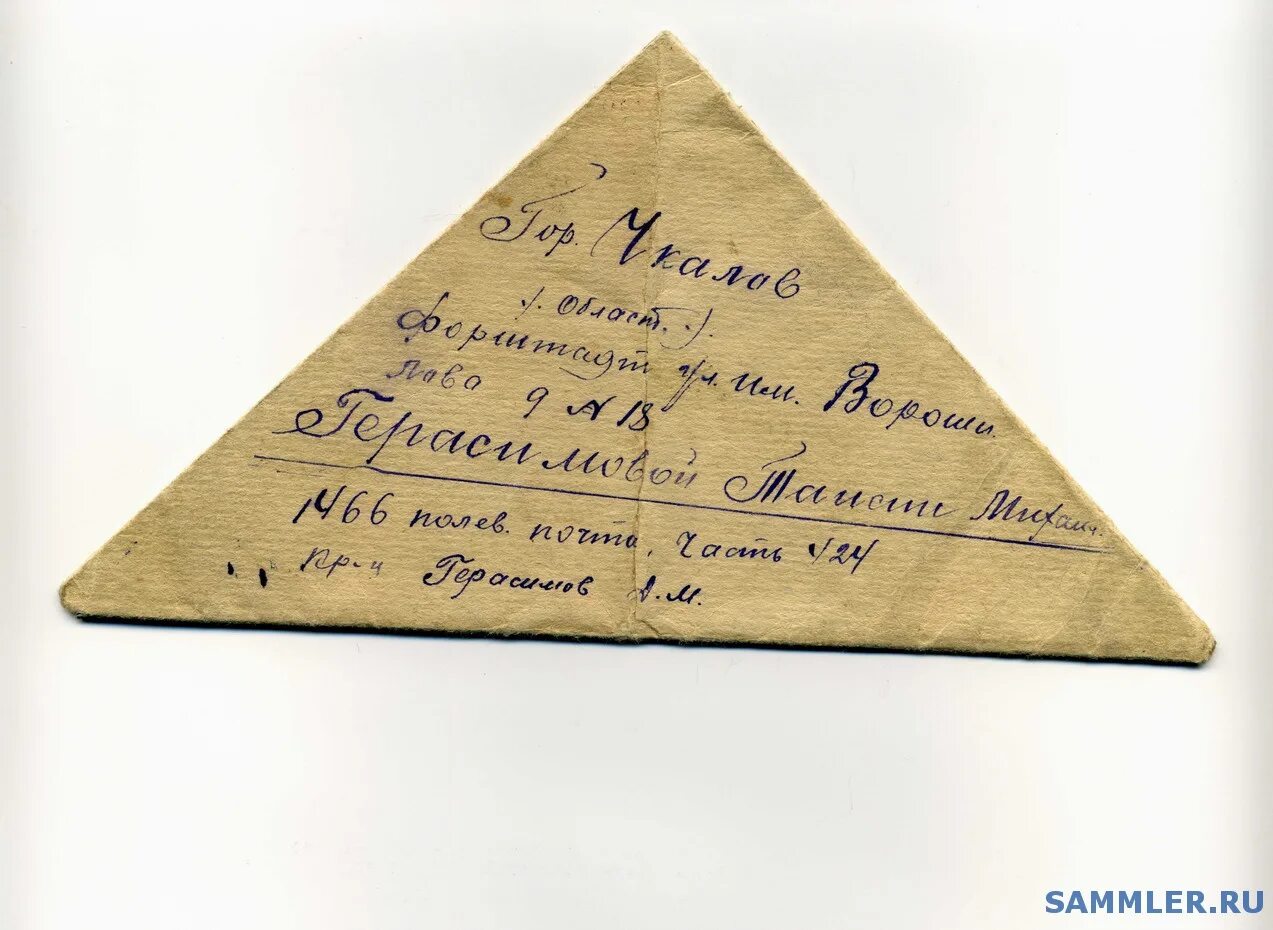 Гор. Чкалов
/. Област. ./.
Форштадт ул. им. Вороши
лова 9 N 18
Герасимовой Таисии Михаил.
1466 полев. почта, часть 424
кр-ц Герасимов А.М.
SAMMLER.RU